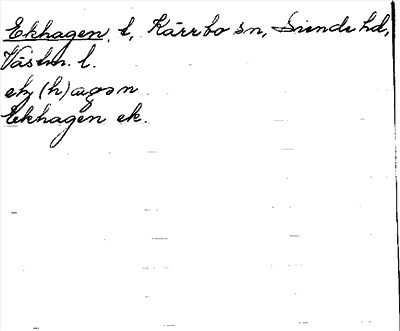 Ekhagen, t, Kärrbo sn, Siende hd,
Västm. l.
ek(h)agən
Ekhagen ek.